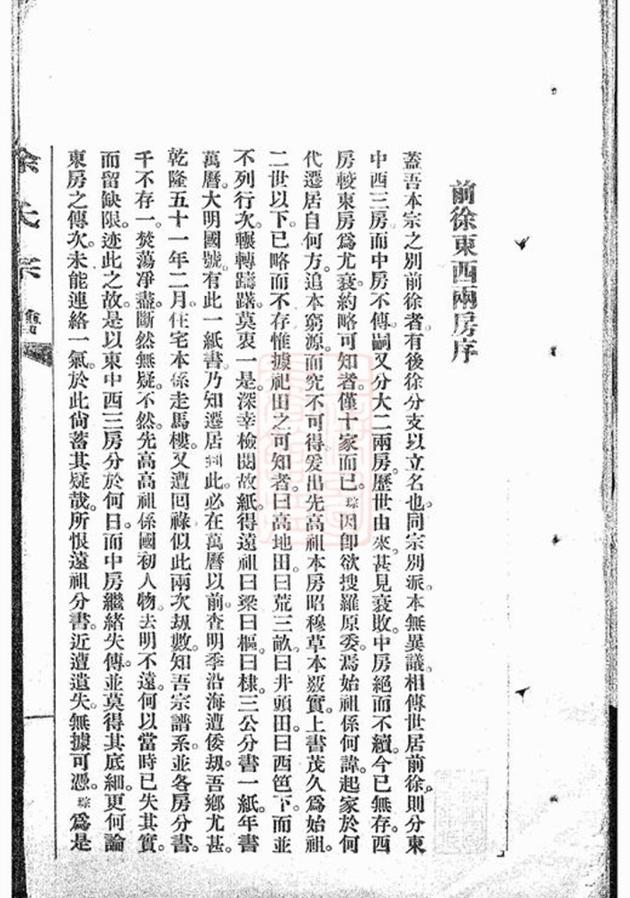 前徐東西兩房序
蓋吾本宗之別前徐者有後徐分支以立名也。同宗別派本無異議相傳世居前徐。則分東
中西三房而中房不傳嗣又分大二兩房。歷世由來。甚見衰敗。中房絕而不續。今已無存。西
房較東房爲尤衰。約略可知者。僅十家而已。琮因卽欲搜羅原委。爲始祖係何諱。起家於何
代。遷居自何方。追本窮源。而究不可得。爰出先高祖本房昭穆草本覈實。上書茂久爲始祖。
二世以下。已略而不存。惟據祀田之可知者。曰高地田。曰荒三畝。曰井頭田。曰西笆下。而並
不列行次。輾轉躊躇。莫衷一是。深幸檢閱故紙。得遠祖曰梁曰樞曰棣三公分書一紙。年書
萬曆。大明國號。有此一紙書。乃知遷居於此。必在萬曆以前。查明季沿海遭倭刼。吾鄉尤甚。
乾隆五十一年二月。住宅本係走馬樓。又遭回祿。似此兩次刼數。知吾宗譜系。並各房分書。
千不存一。焚蕩凈盡。斷然無疑。不然。先高高祖係國初人物。去明不遠。何以當時已失其實。
而留缺限。迹此之故。是以東中西三房分於何日。而中房繼緒失傳。並莫得其底細。更何論
東房之傳次。未能連絡一氣。於此尙蓄其疑哉。所恨遠祖分書。近遭遺失。無據可憑。琮爲是
氏宗譜